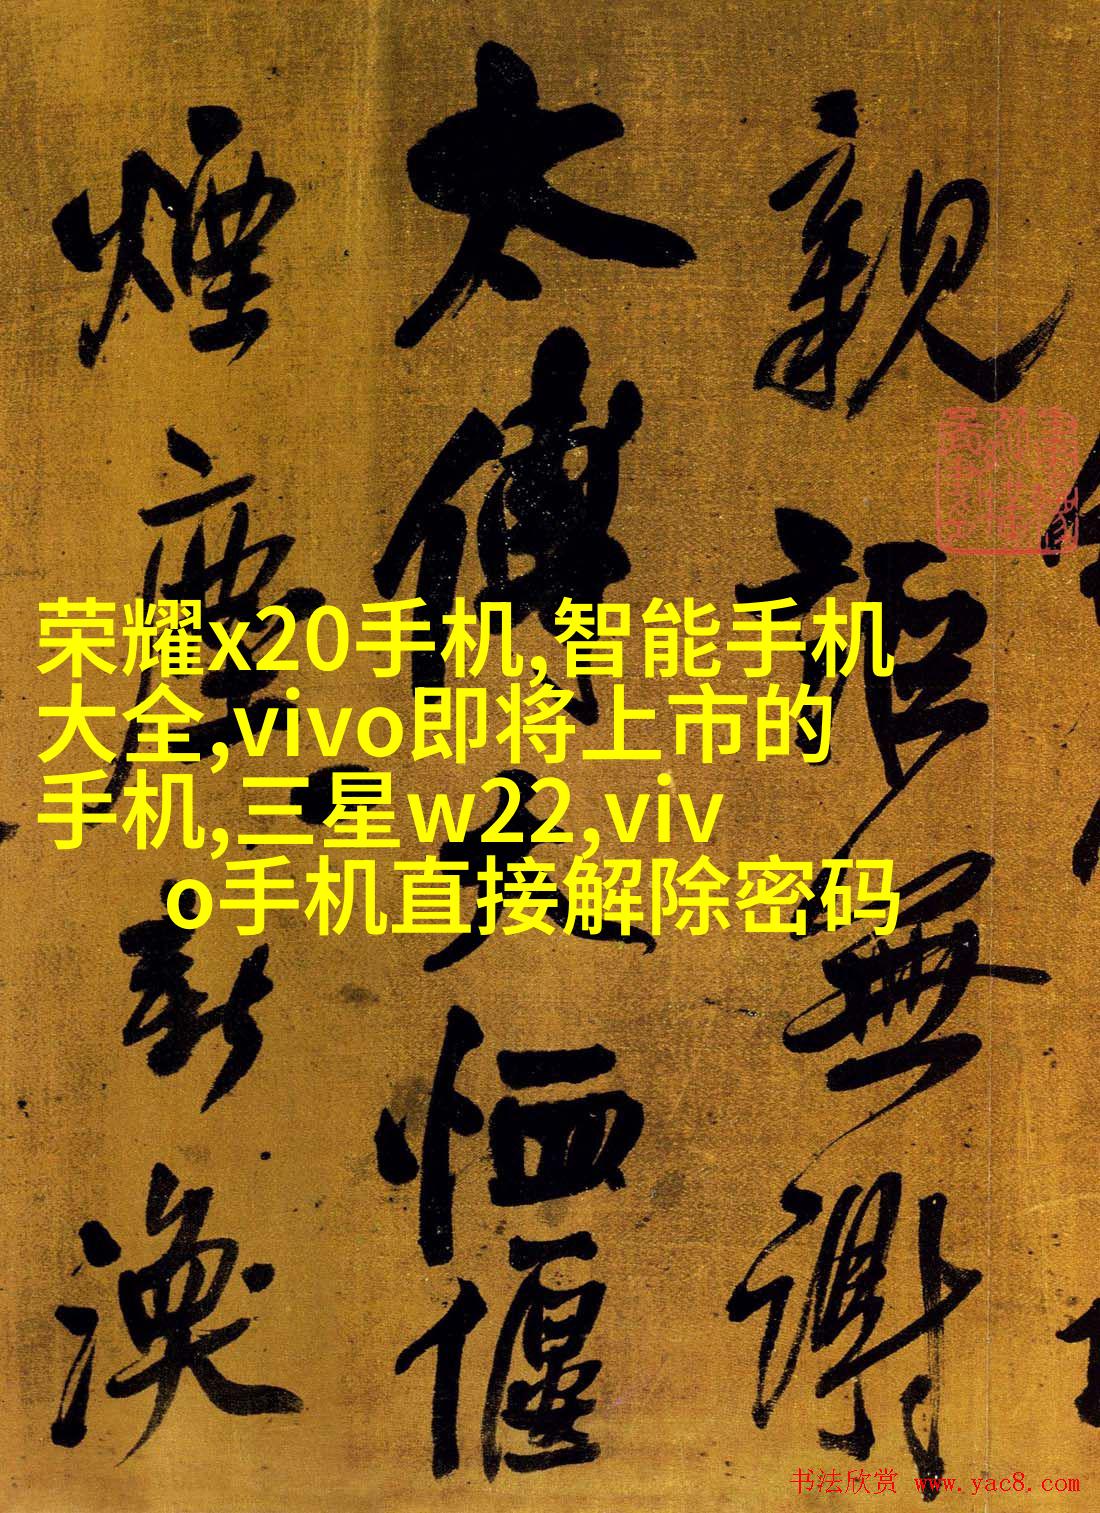 荣耀x20手机,智能手机
大全,vivo即将上市的
手机,三星w22,viv
o手机直接解除密码
親詎無謝
太傅恤偃
煙塵渙
书法欣赏 www.yac8.com